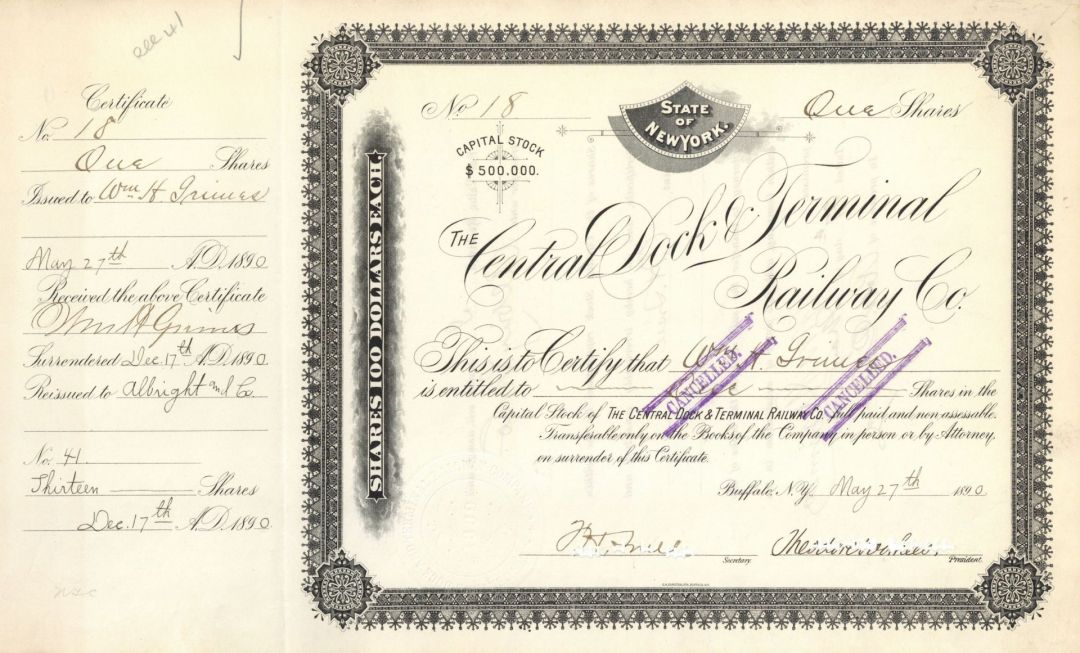 see 41
Certificate
No. 18
One Shares
Issued to Wm H. Grimes
May 27th A.D. 1890
Received the above Certificate
Wm H Grimes
Surrendered Dec. 17th A.D. 1890.
Reissued to Albright and Co.
No. 41
Thirteen Shares
Dec. 17th A.D. 1890
SHARES 100 DOLLARS EACH
No. 18
STATE
OF
NEW YORK.
One Shares
CAPITAL STOCK
$500.000.
THE
Central Dock & Terminal
Railway Co.
This is to Certify that Wm H. Grimes
is entitled to One Shares in the
Capital Stock of THE CENTRAL DOCK & TERMINAL RAILWAY CO. full paid and non assessable.
Transferable only on the Books of the Company in person or by Attorney,
on surrender of this Certificate.
CANCELLED.
CANCELLED.
Buffalo, N.Y. May 27th 1890.
Secretary.
President.